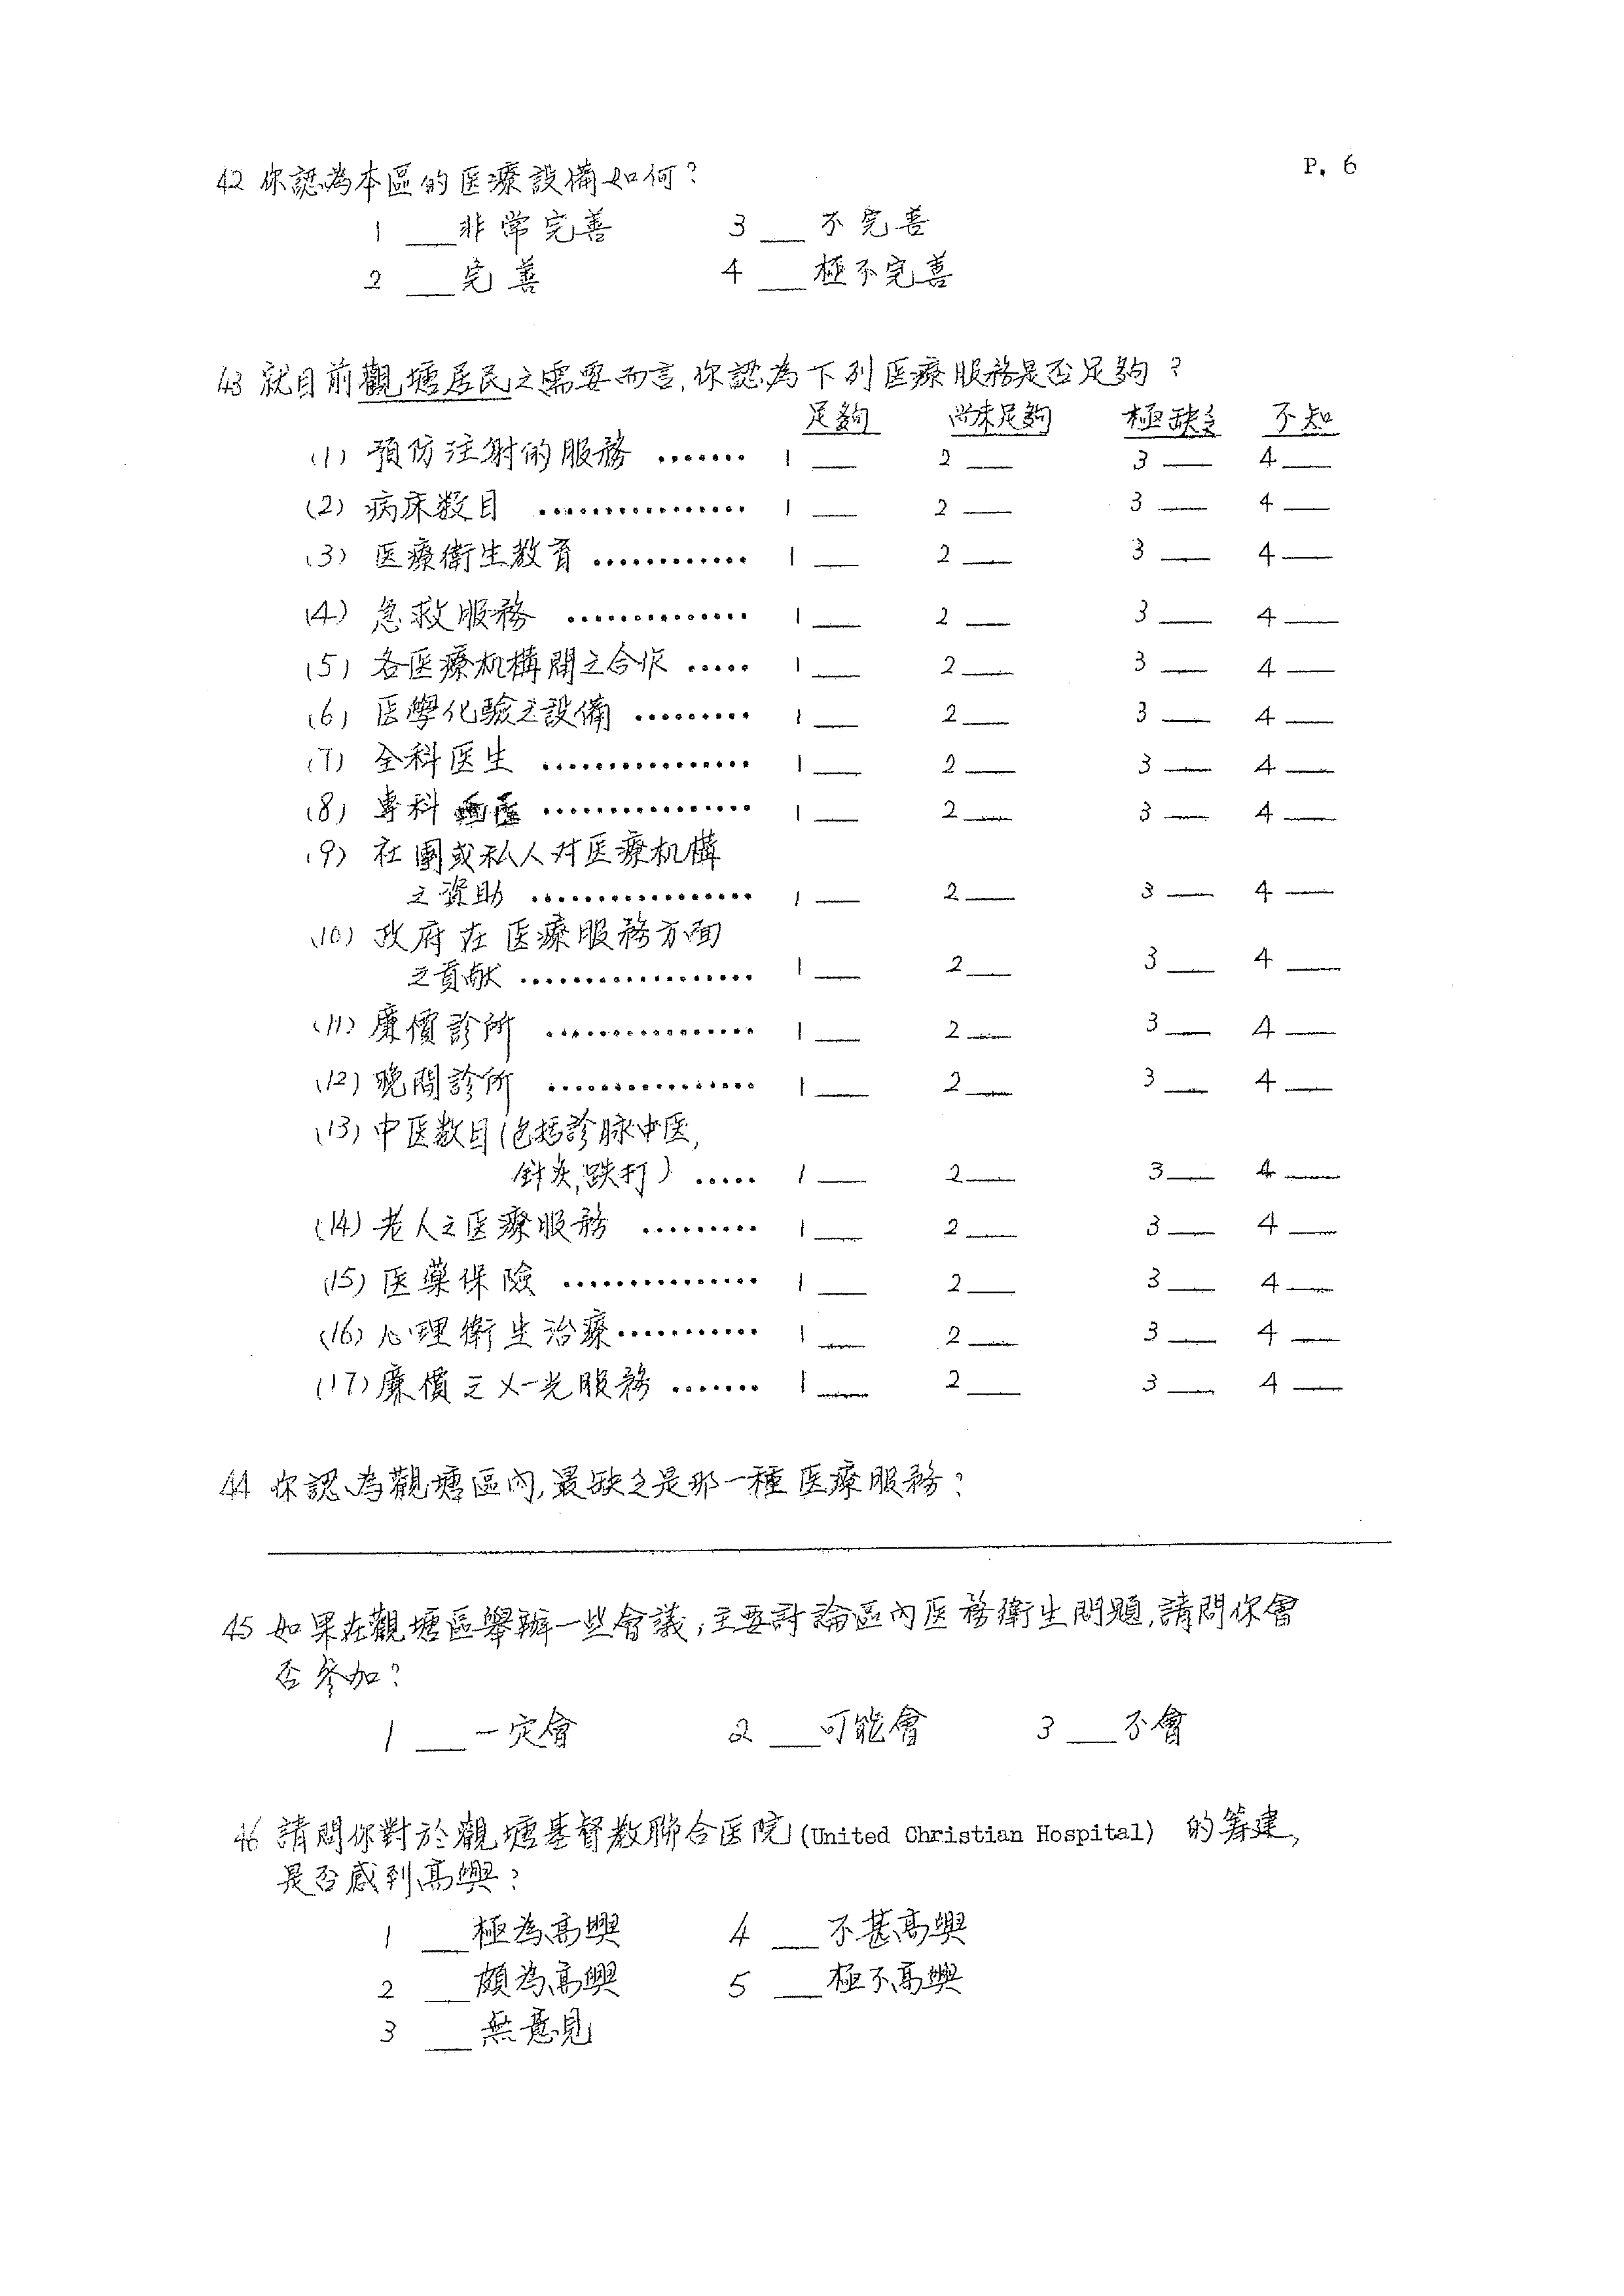 P. 6
42 你認為本區的医療設備如何?
1 __非常完善 3 __不完善
2 __完善 4 __極不完善
43 就目前觀塘居民之需要而言,你認為下列医療服務是否足夠?
足夠 尚未足夠 極缺乏 不知
(1) 預防注射的服務 ....... 1 __ 2 __ 3 __ 4 __
(2) 病床数目 ................ 1 __ 2 __ 3 __ 4 __
(3) 医療衛生教育 ............ 1 __ 2 __ 3 __ 4 __
(4) 急救服務 .............. 1 __ 2 __ 3 __ 4 __
(5) 各医療机構間之合作 ..... 1 __ 2 __ 3 __ 4 __
(6) 医學化驗之設備 ......... 1 __ 2 __ 3 __ 4 __
(7) 全科医生 ................ 1 __ 2 __ 3 __ 4 __
(8) 專科医 ................ 1 __ 2 __ 3 __ 4 __
(9) 社團或私人对医療机構
之資助 ................. 1 __ 2 __ 3 __ 4 __
(10) 政府在医療服務方面
之貢献 .................. 1 __ 2 __ 3 __ 4 __
(11) 廉價診所 ................ 1 __ 2 __ 3 __ 4 __
(12) 晚間診所 ................ 1 __ 2 __ 3 __ 4 __
(13) 中医数目(包括診脉中医,
針灸,跌打) ..... 1 __ 2 __ 3 __ 4 __
(14) 老人之医療服務 ......... 1 __ 2 __ 3 __ 4 __
(15) 医藥保險 ............... 1 __ 2 __ 3 __ 4 __
(16) 心理衛生治療 ........... 1 __ 2 __ 3 __ 4 __
(17) 廉價之X-光服務 ....... 1 __ 2 __ 3 __ 4 __
44 你認為觀塘區內,最缺乏是那一種医療服務?
45 如果在觀塘區舉辦一些會議,主要討論區內医務衛生問題,請問你會
否參加?
1 __一定會 2 __可能會 3 __不會
46 請問你對於觀塘基督教聯合医院(United Christian Hospital) 的籌建,
是否感到高興?
1 __極為高興 4 __不甚高興
2 __頗為高興 5 __極不高興
3 __無意見